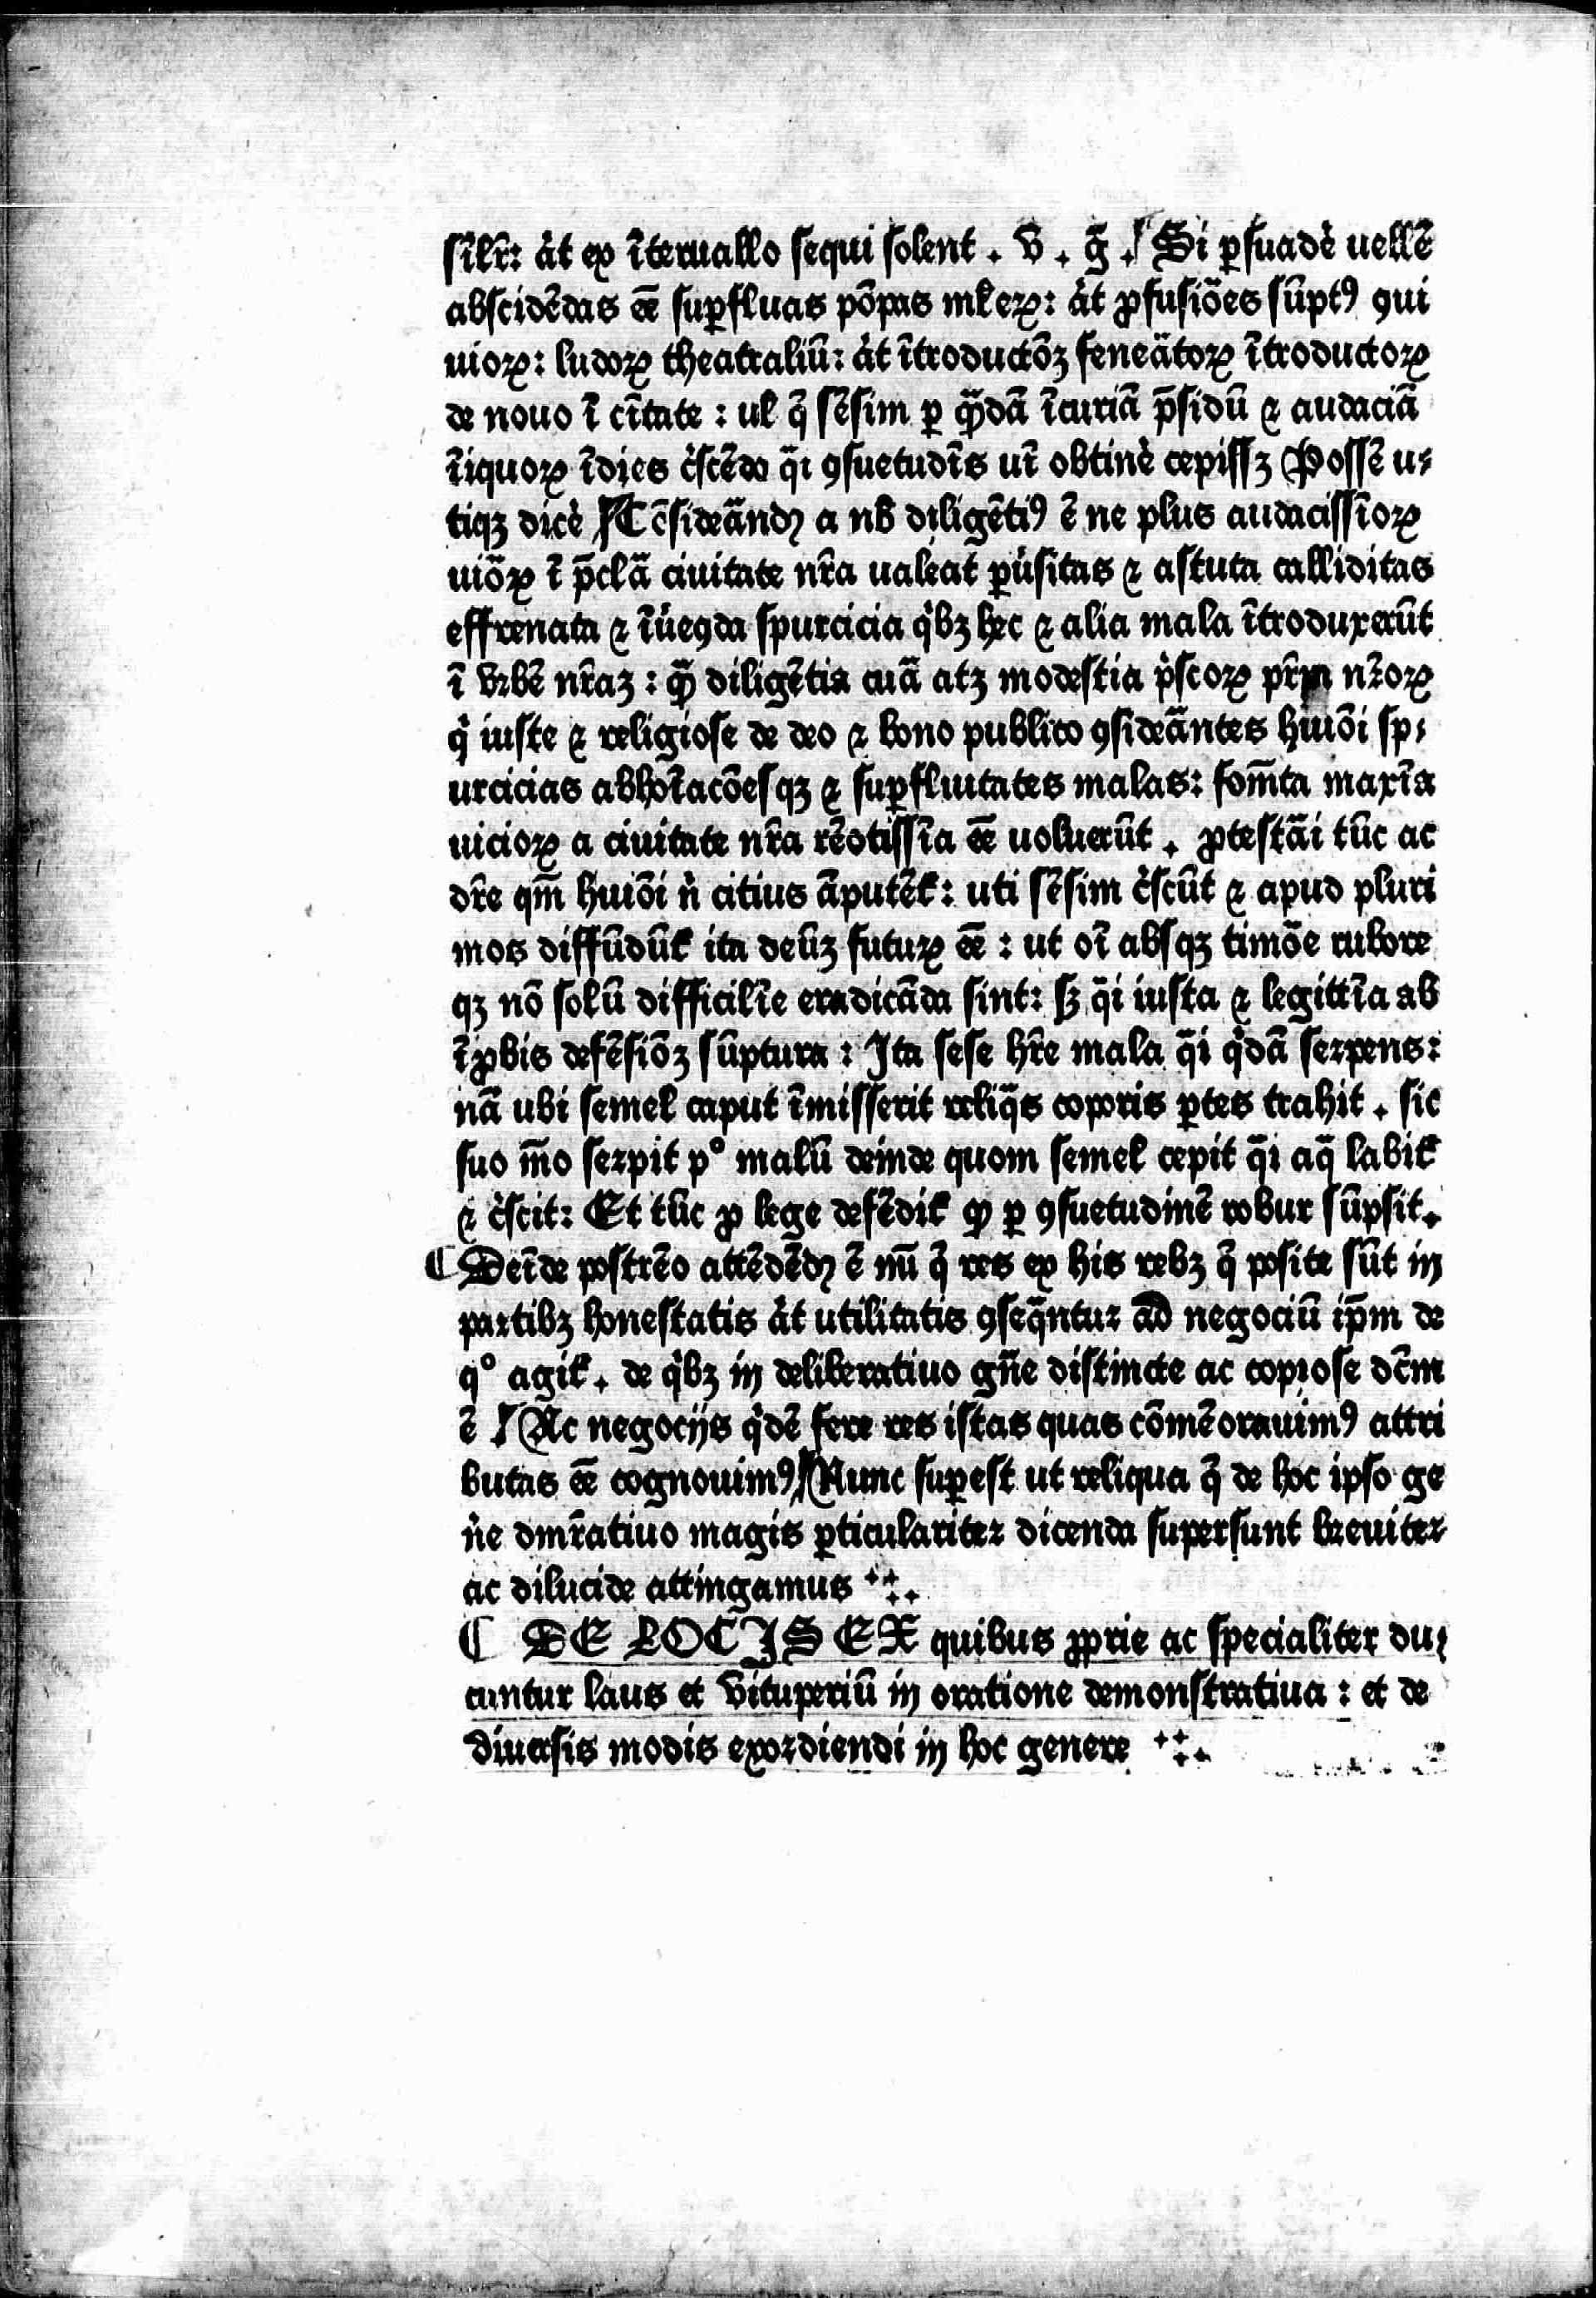 sil̃r: át ex ĩteruallo sequi solent . v . g̃ . Si ꝑsuadè uellẽ
abscidẽdas eẽ suꝑfluas põpas mlꝭeꝝ: át ꝓfusiões sũptꝰ ꝯui
uioꝝ: ludoꝝ theatraliũ: át ĩtroductõꝫ feneãtoꝝ ĩtroductoꝝ
de nouo ĩ cĩtate : ul q̃ sẽsim ꝑ q̃dã ĩcuriã p̃sidũ ⁊ audaciã
ĩiquoꝝ ĩdies c̀scẽdo q̃i ꝯsuetudĩs uĩ obtinè cepissꝫ Possẽ u⸗
tiqꝫ dicè Cõsideãndꝫ a nb̃ diligẽtiꝰ ẽ ne plus audacissĩoꝝ
uiõꝝ ĩ p̃clã ciuitate nr̃a ualeat ꝑúsitas ⁊ astuta calliditas
effrenata ⁊ ĩúeꝯda spurcicia q̇bꝫ hec ⁊ alia mala ĩtroduxerũt
ĩ vrbẽ nr̃aꝫ : q̃ diligẽtia cuã atꝫ modestia ṗscoꝝ pr̃m nr̃oꝝ
q̇ iuste ⁊ religiose de deo ⁊ bono publico ꝯsideãntes huiõi sp⸗
urcicias abhoĩacõesqꝫ ⁊ suꝑfluitates malas: fom̃ta maxĩa
uicioꝝ a ciuitate nr̃a rẽotissĩa eẽ uoluerũt . ꝓtestãi tũc ac
dr̃e qm̃ huiõi ǹ citius ãputẽꝭ: uti sẽsim c̀scũt ⁊ apud pluri
mos diffũdũꝭ ita deũꝫ futuꝝ eẽ : ut oĩ absqꝫ timõe rubore
qꝫ nõ solũ difficilĩe eradicãda sint: sꝫ q̃i iusta ⁊ legittĩa ab
ĩꝓbis defẽsiõꝫ sũptura : Ita sese hr̃e mala q̃i q̇dã serpens:
nã ubi semel caput ĩmisserit reliq̃s coporis ꝑtes trahit . sic
suo m̃o serpit p° malũ deinde quom semel cepit q̃i aq̃ labiꝭ
⁊ c̀scit: Et tũc ꝓ lege defẽdiꝭ ꝙ ꝑ ꝯsuetudinẽ robur sũpsit.
¶ Deĩde postrẽo attẽdẽdꝫ ẽ nũ q̃ res ex his rebꝫ q̃ posite sũt in
partibꝫ honestatis át utilitatis ꝯseq̃ntur ad negociũ ip̃m de
q° agiꝭ . de q̇bꝫ in deliberatiuo gñe distincte ac copiose dc̃m
ẽ Ac negocijs q̇dẽ fere res istas quas cõmẽorauimꝰ attri
butas eẽ cognouimꝰ Nunc suꝑest ut reliqua q̃ de hoc ipso ge
ǹe dmr̃atiuo magis ꝑticulariter dicenda supersunt breuiter
ac dilucide attingamus
¶ DE LOCIS EX quibus ꝓprie ac specialiter du⸗
cuntur laus et vituperiũ in oratione demonstratiua : et de
diuersis modis exordiendi in hoc genere